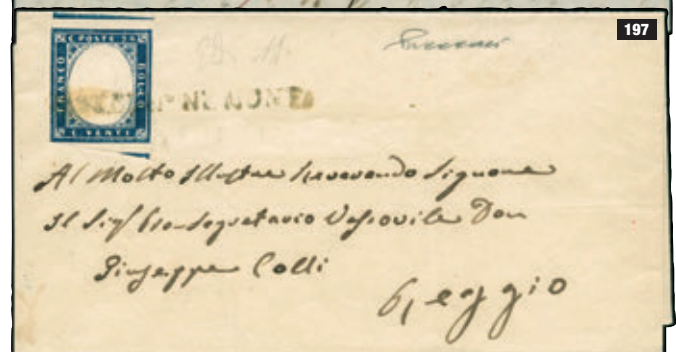 197
C. POSTE 20
FRANCO
BOLLO
C. VENTI
NE' MONTI
Al Molto Illustre Reverendo Signore
Il Sig. Pro-Segretario Vescovile Don
Giuseppe Colli
Reggio